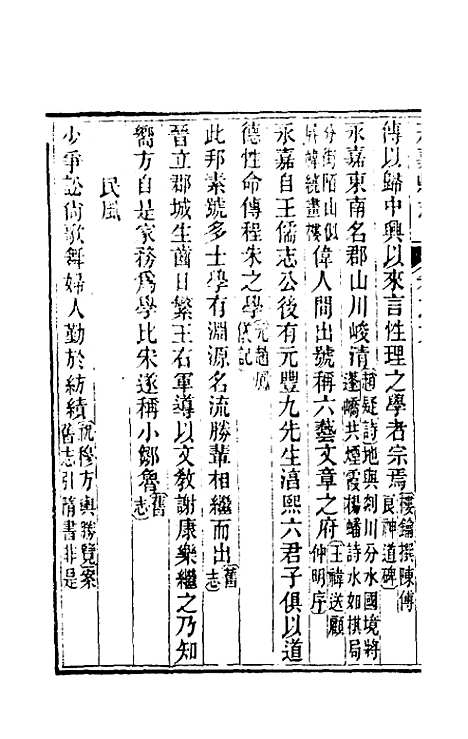 傳以歸中興以來言性理之學者宗焉樓鑰撰陳傅良神道碑
永嘉東南名郡山川峻清趙疑詩地與剡川分水國境將蓬嶠共煙霞楊蟠詩水如棋局
分街陌山似屏幃繞畫樓偉人間出號稱六藝文章之府王褘送顧仲明序
永嘉自王儒志公後有元豐九先生淳熙六君子俱以道
德性命傳程朱之學
此邦素號多士學有淵源名流勝輩相繼而出舊志
晉立郡城生齒日繁王右軍導以文敎謝康樂繼之乃知
嚮方自是家務為學比宋遂稱小鄒魯舊志
民風
少爭訟尚歌舞婦人勤於紡績祝穆方輿勝覽案舊志引隋書非是